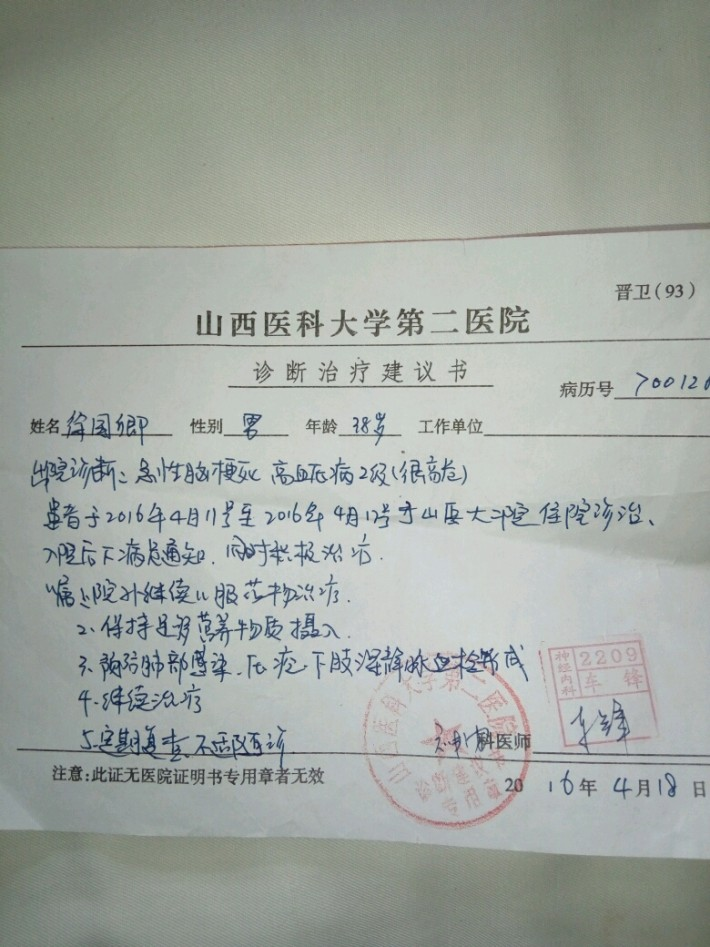 晋卫(93)
山西医科大学第二医院
诊断治疗建议书
病历号 700120
姓名 徐国卿 性别 男 年龄 38岁 工作单位
出院诊断：急性脑梗死 高血压病2级(很高危)
患者于2016年4月11号至2016年4月12号于山医大二院住院诊治、
入院后下病危通知.同时积极治疗.
嘱1、院外继续口服药物治疗.
2、保持足够营养物质摄入.
3、预防肺部感染.压疮.下肢深静脉血栓形成
4、继续治疗
5、定期复查.不适随诊.
神内科医师
神经内科 2209 车锋
车锋
山西医科大学第二医院
注意:此证无医院证明书专用章者无效
2016年4月18日